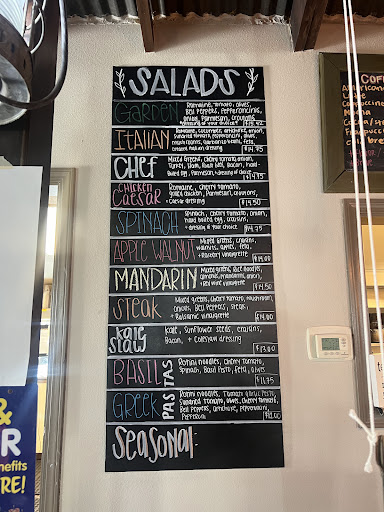 SALADS
GARDEN
Romaine, tomato, olives,
Bell Peppers, Pepperoncinis,
Onion, Parmesan, croutons,
ITALIAN
Romaine, cucumber, artichoke, onion,
Sundried tomato, pepperoncini, olives,
mushrooms, Garbanzo beans, feta,
Italian dressing
$14.75
CHEF
Mixed Greens, cherry tomato, onion,
Turkey, Ham, Bacon, Hard-
Boiled egg, Parmesan, + dressing of choice
$14.75
CHICKEN
CAESAR
Romaine, cherry tomato,
grilled chicken, Parmesan, croutons,
+ Caesar dressing
$14.50
SPINACH
Spinach, cherry tomato, onion,
hard boiled egg, craisins,
+ dressing of your choice
$14.75
APPLE WALNUT
Mixed greens, craisins,
walnuts, apples, feta,
+ Raspberry Vinaigrette
$14.00
MANDARIN
Mixed greens, Rice noodles,
almonds, mandarins, onion,
+ Red wine vinaigrette
$14.50
STEAK
Mixed greens, cherry tomato, mushroom,
onions, Bell Peppers, steak,
+ Balsamic vinaigrette
$16.00
Kale
Slaw
Kale, Sunflower seeds, craisins,
Bacon, + Coleslaw dressing
$13.00
PASTAS
BASIL
Rotini noodles, cherry tomato,
Spinach, Basil Pesto, feta, olives
$11.75
GREEK
Rotini noodles, Tomato Garlic Pesto,
Sundried Tomato, olives, cherry tomato,
Bell Peppers, artichoke, pepperoncini,
Pepperoni
$12.00
SEASONAL-
COFF
Americano
Latte
Cappuccino
Mocha
&
R
nefits
RE!